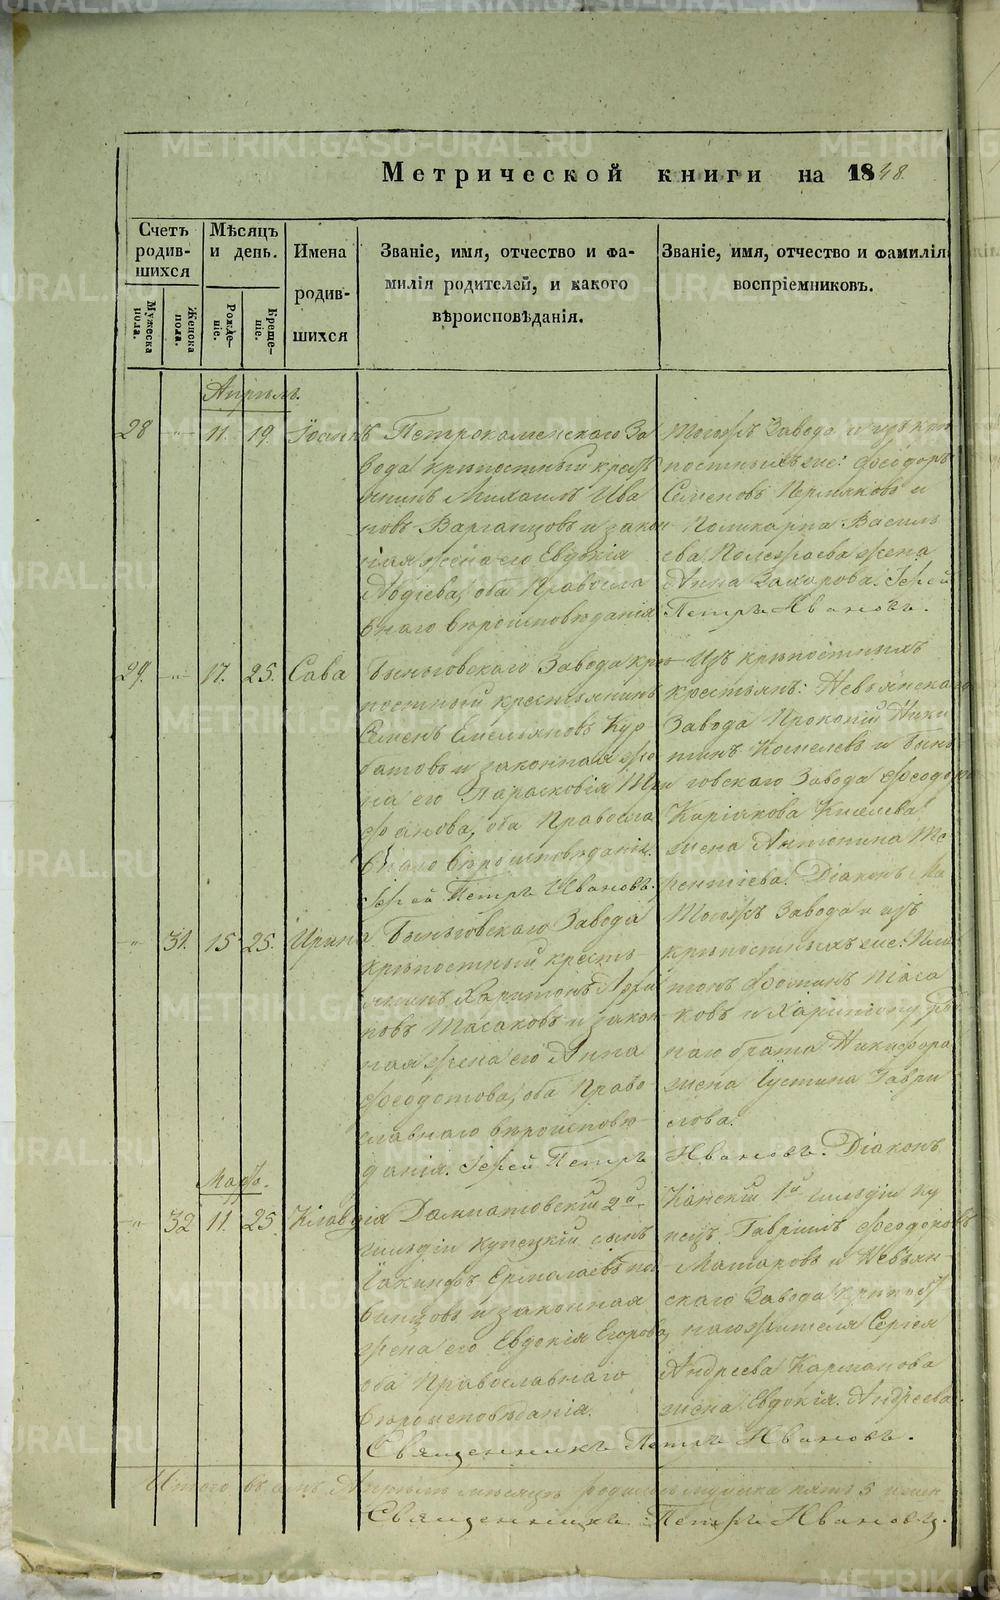 Метрической книги на 1848.
Счетъ родившихся
Мѣсяцъ и день.
Имена родившихся
Званіе, имя, отчество и фамилія родителей, и какого вѣроисповѣданія.
Званіе, имя, отчество и фамилія воспріемниковъ.
Мужеска пола.
Женска пола.
Рожденіе.
Крещеніе.
Апрѣль.
28 -"- 11. 19. Іоаннъ
Петрокаменскаго За
вода крѣпостный крест
янинъ Михаилъ Ива
новъ Варганцовъ и закон
ная жена его Евдокія
Авдіева, оба Правосла
внаго вѣроисповѣданія
Тогожъ Завода и изъ крѣ
постныхъ же: Феодоръ
Семеновъ Пермяковъ и
Поликарпа Василь
ева Полежаева жена
Анна Захарова. Іерей
Петръ Ивановъ.
29. -"- 17. 25. Сава
Быньговскаго Завода крѣ
постный крестьянинъ
Семенъ Емельяновъ Кур
батовъ и законная же
на его Парасковія Три
фанова, оба Правосла
внаго вѣроисповѣданія.
Іерей Петръ Ивановъ.
Изъ крѣпостныхъ
крестьянъ: Невьянскаго
Завода Прокопій Ники
тинъ Кошелевъ и Бынь
говскаго Завода Феодора
Карпакова Киселева
жена Антонина Те
рентіева. Діаконъ
-"- 31. 15. 25. Ирина
Быньговскаго Завода
крѣпостный кресть
янинъ Харитонъ
новъ Масаковъ и закон
ная жена его Анна
Феодотова, оба Право
славнаго вѣроисповѣ
данія. Іерей Петръ
Тогожъ Завода и изъ
крѣпостныхъ же: Пла
тонъ Фоминъ Маса
ковъ и Харитону род
наго брата Никифора
жена Іустина Гаври
лова.
Ивановъ. Діаконъ
Мартъ.
-"- 32 11. 25. Клавдія
Далматовскій 2й
гильдіи купецкій сынъ
Іакинфъ Ермолаевъ
и законная
жена его Евдокія Егорова,
оба Православнаго
вѣроисповѣданія.
Канскій 1й гильдіи ку
пецъ Гавріилъ Феодоровъ
Машаровъ и Невьян
скаго Завода крѣпост
наго жителя Сергія
Андреева Карманова
жена Евдокія Андреева.
Священникъ Петръ Ивановъ.
Итого въ Апрѣлѣ мѣсяцѣ родилось мужеска пять 5
Священникъ Петръ Ивановъ.
METRIKI.GASO-URAL.RU